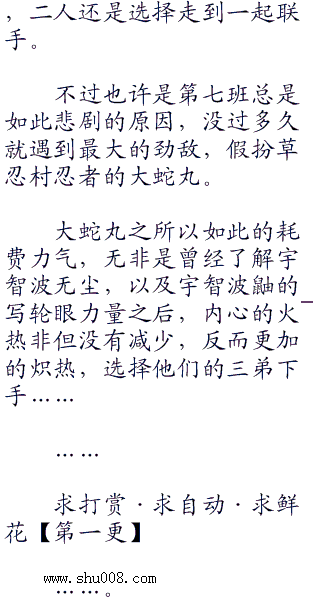 ，二人还是选择走到一起联
手。
不过也许是第七班总是
如此悲剧的原因，没过多久
就遇到最大的劲敌，假扮草
忍村忍者的大蛇丸。
大蛇丸之所以如此的耗
费力气，无非是曾经了解宇
智波无尘，以及宇智波鼬的
写轮眼力量之后，内心的火
热非但没有减少，反而更加
的炽热，选择他们的三弟下
手……
……
求打赏·求自动·求鲜
花【第一更】
www.shu008.com
……。